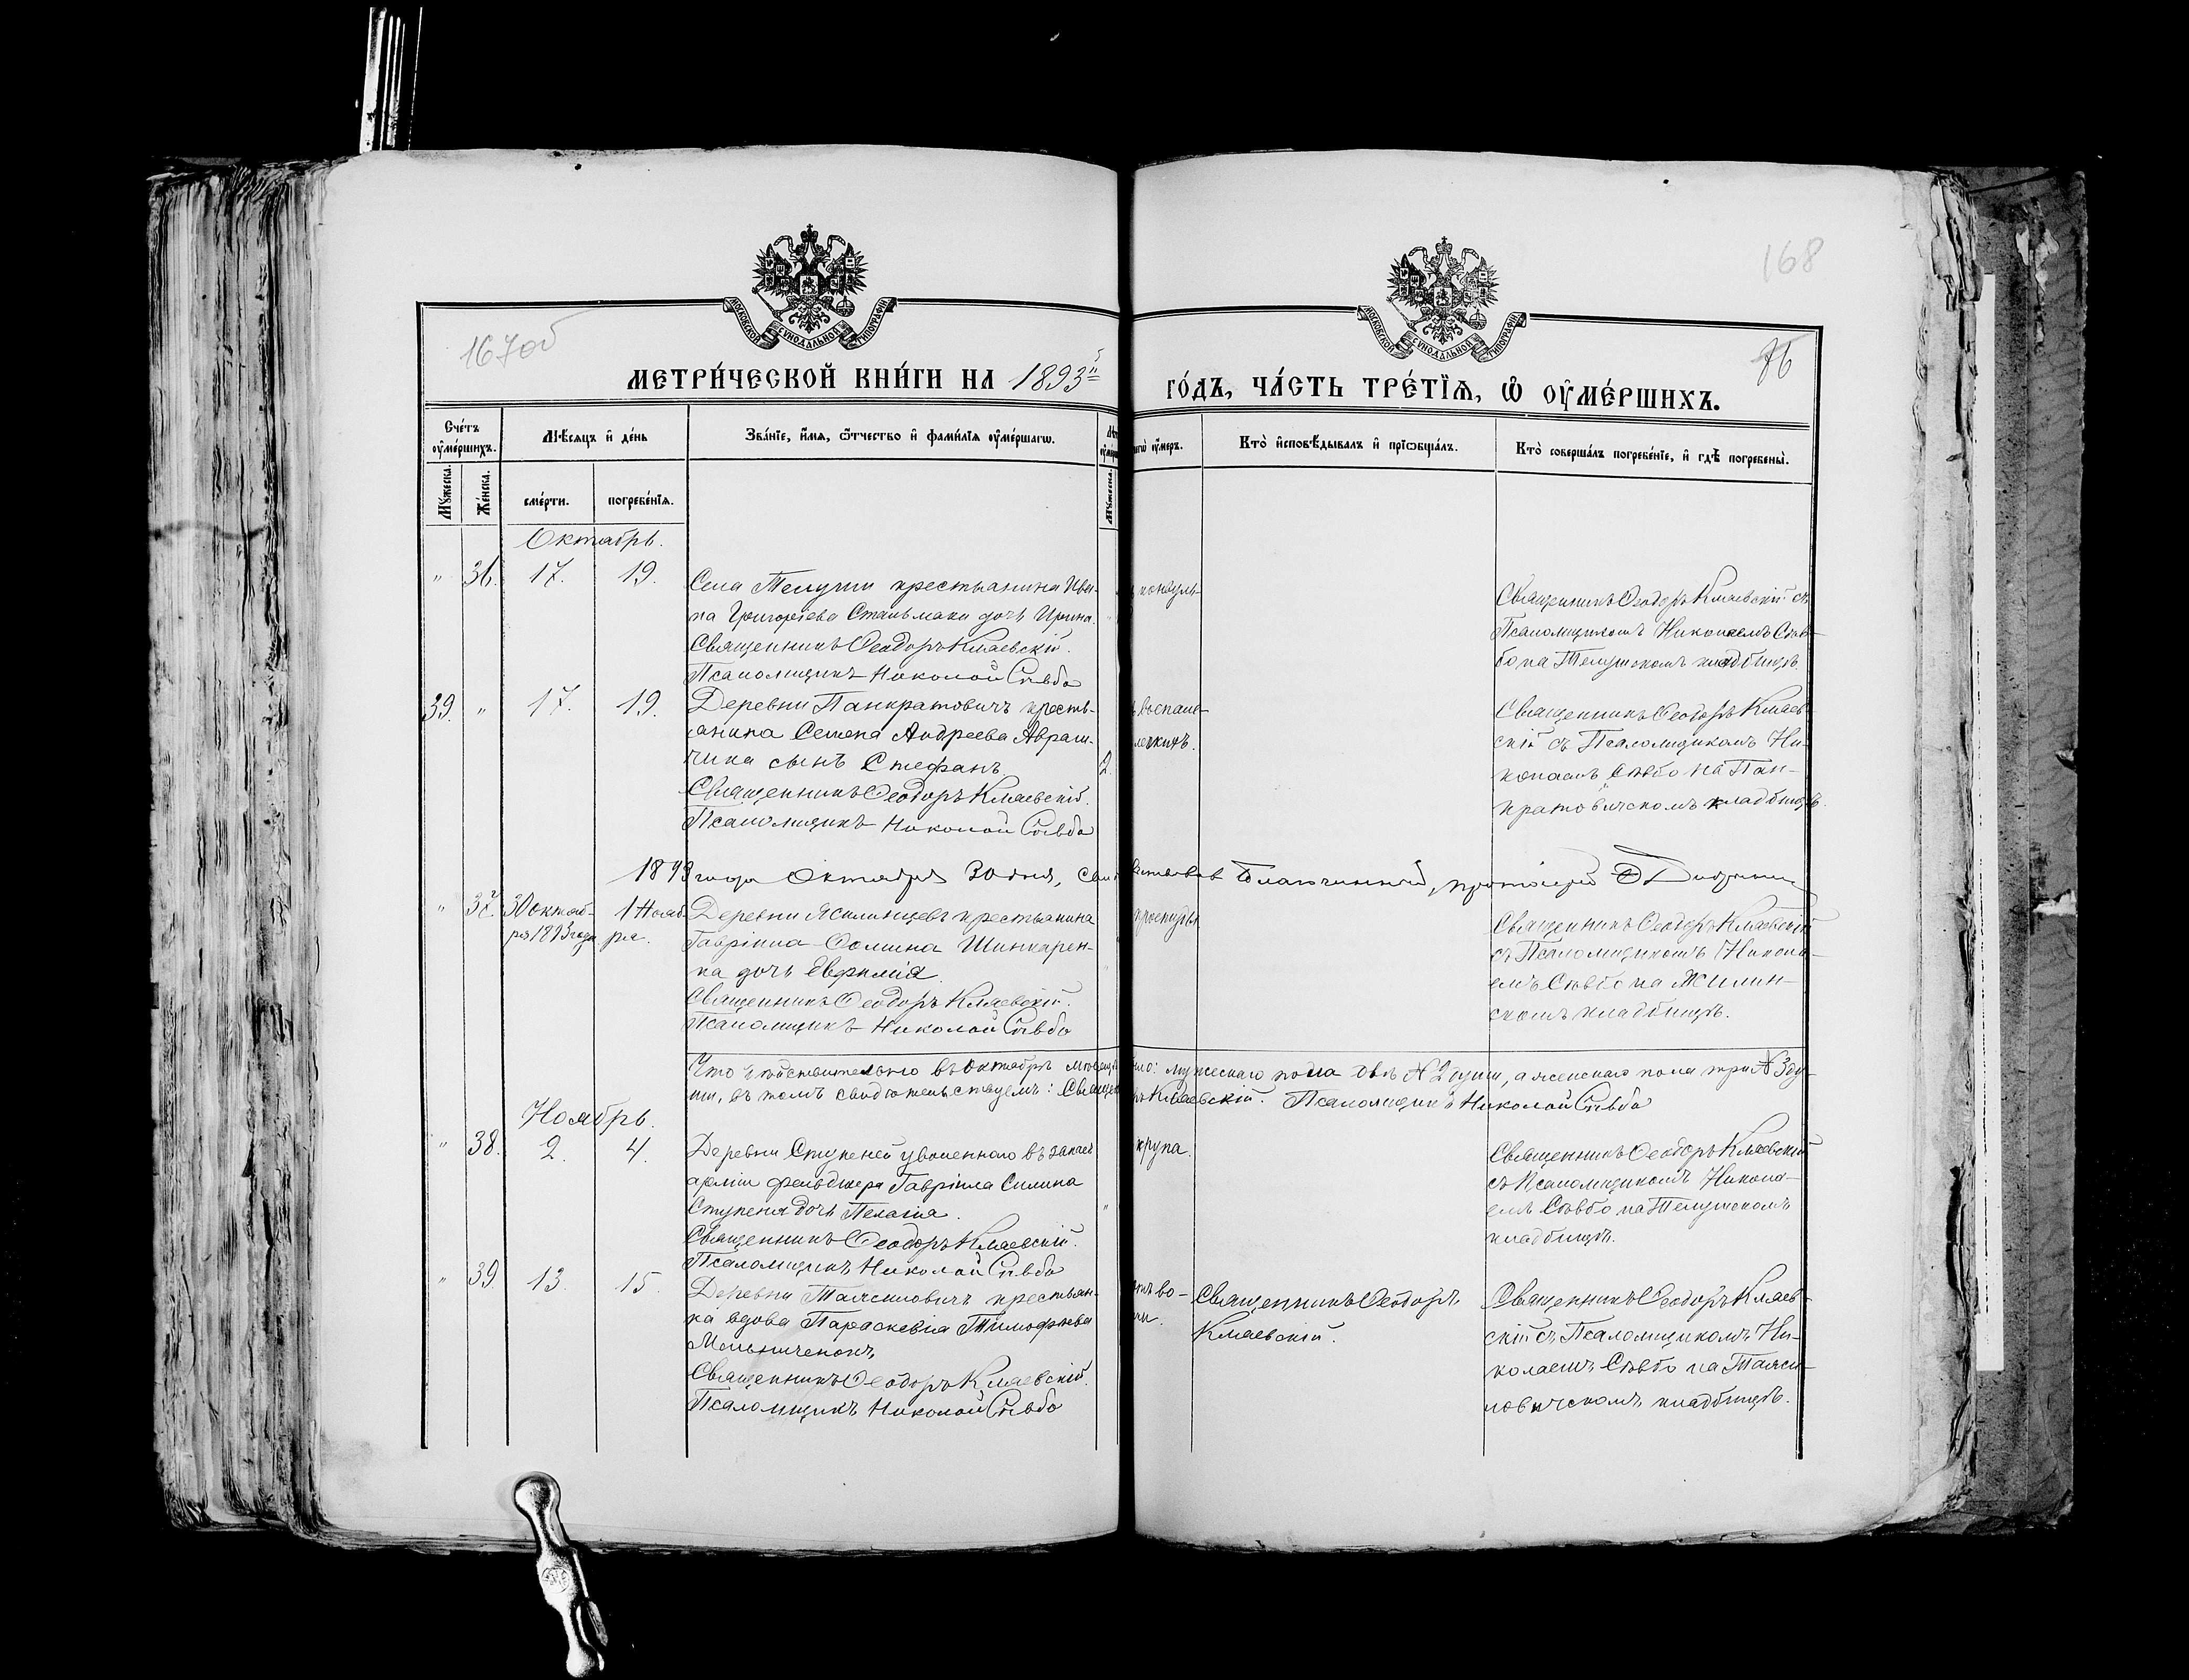 167об
168
76
МОСКОВСКОЙ СУНОДАЛЬНОЙ ТИПОГРАФІИ
МОСКОВСКОЙ СУНОДАЛЬНОЙ ТИПОГРАФІИ
МЕТРИ́ЧЕСКОЙ КНИ́ГИ НА 1893й
ГО́ДЪ, ЧА́СТЬ ТРЕ́ТЇѦ, Ѽ ОУ҆МЕ́РШИХЪ.
Сче́тъ оу҆ме́ршихъ.
Мѣ́сяцъ и҆ де́нь
Зва́нїе, и҆́мѧ, ѻ҆́тчество и҆ фами́лїѧ оу҆ме́ршагѡ.
Кто̀ и҆сповѣ́дывалъ и҆ прїѡбща́лъ.
Кто̀ соверша́лъ погребе́нїе, и҆ гдѣ̀ погребены̀.
Мꙋ́жеска.
Же́нска.
сме́рти.
погребе́нїѧ.
Мꙋ́жеска.
Октябрь.
" 36. 17. 19.
Села Телуши крестьянина Ива-
на Григорьева Стальмака дочь Ирина.
Священникъ Ѳеодоръ Клаевскій.
Псаломщикъ Николай Сѣвбо
Священникъ Ѳеодоръ Клаевскій съ
Псаломщикомъ Николаемъ Сѣв-
бо на Телушскомъ кладбищѣ.
39. " 17. 19.
Деревни Панкратовичъ кресть-
янина Семена Андреева Аврам-
чика сынъ Стефанъ.
2.
Священникъ Ѳеодоръ Клаевскій.
Псаломщикъ Николай Сѣвбо
воспале-
легкихъ.
Священникъ Ѳеодоръ Клаев-
скій съ Псаломщикомъ Ни-
колаемъ Сѣвбо на Пан-
кратовичскомъ кладбищѣ.
1893 года Октября 30 дня, Благочинный, протоіерей
" 37. 30 октяб- 1 Нояб-
ря 1893 года ря.
Деревни Ясилинцевъ крестьянина
Гавріила Фомина Шинкарен-
ка дочь Евфимія.
Священникъ Ѳеодоръ Клаевскій.
Псаломщикъ Николай Сѣвбо
простуды
Священникъ Ѳеодоръ Клаевскій
съ Псаломщикомъ Никола-
емъ Сѣвбо на Жилин-
скомъ кладбищѣ.
Что дѣйствительно въ октябрѣ мѣсяцѣ было: мужескаго пола двѣ № 2 души, а женскаго пола три № 3 ду-
ши, въ томъ свидѣтельствуемъ: Священ Клаевскій. Псаломщикъ Николай Сѣвбо
Ноябрь.
" 38. 2. 4.
Деревни Ступеней уволеннаго въ запасъ
арміи фельдшера Гавріила Силина
Ступеня дочь Пелагія.
Священникъ Ѳеодоръ Клаевскій.
Псаломщикъ Николай Сѣвбо
крупа.
Священникъ Ѳеодоръ Клаевскій
съ Псаломщикомъ Никола-
емъ Сѣвбо на Телушскомъ
кладбищѣ.
" 39 13. 15.
Деревни Таясиловичъ крестьян-
ка вдова Параскевія Тимофѣева
Мельниченокъ
Священникъ Ѳеодоръ Клаевскій.
Псаломщикъ Николай Сѣвбо
Священникъ Ѳеодоръ
Клаевскій.
Священникъ Ѳеодоръ Клаев-
скій съ Псаломщикомъ Ни-
колаемъ Сѣвбо на Таяси-
ловичскомъ кладбищѣ.